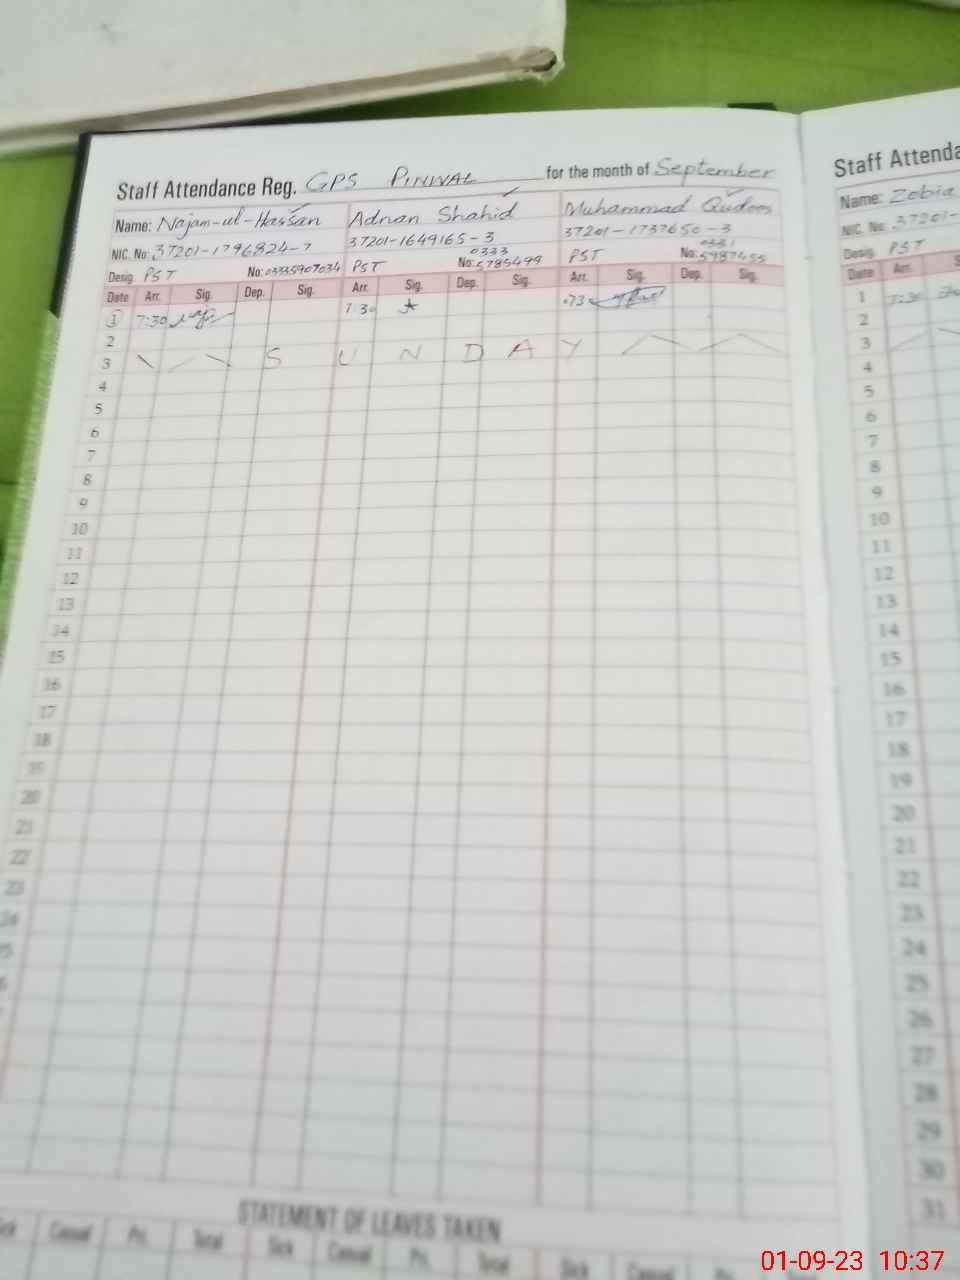 Staff Attendance Reg. GPS PINWAL for the month of September
Name: Najam-ul-Hassan Adnan Shahid Muhammad Qudoos
NIC. No: 37201-1796824-7 37201-1649165-3 37201-1737650-3
Desig. PST No: 03335907034 PST No: 0333 5785499 PST No: 0331 5987455
Date Arr. Sig. Dep. Sig. Arr. Sig. Dep. Sig. Arr. Sig. Dep. Sig.
1 7:30 7:30 73
2
3 S U N D A Y
4
5
6
7
8
9
10
11
12
13
14
15
16
17
18
19
20
21
22
23
24
STATEMENT OF LEAVES TAKEN
Casual Pri. Total Sick Casual Pri. Total Sick Casual
Staff Attenda
Name: Zobia
NIC. No. 37201-
Desig. PST
Date Arr. S
1 7:30
2
3
4
5
6
7
8
9
10
11
12
13
14
15
16
17
18
19
20
21
22
23
24
25
26
27
28
29
30
31
01-09-23 10:37